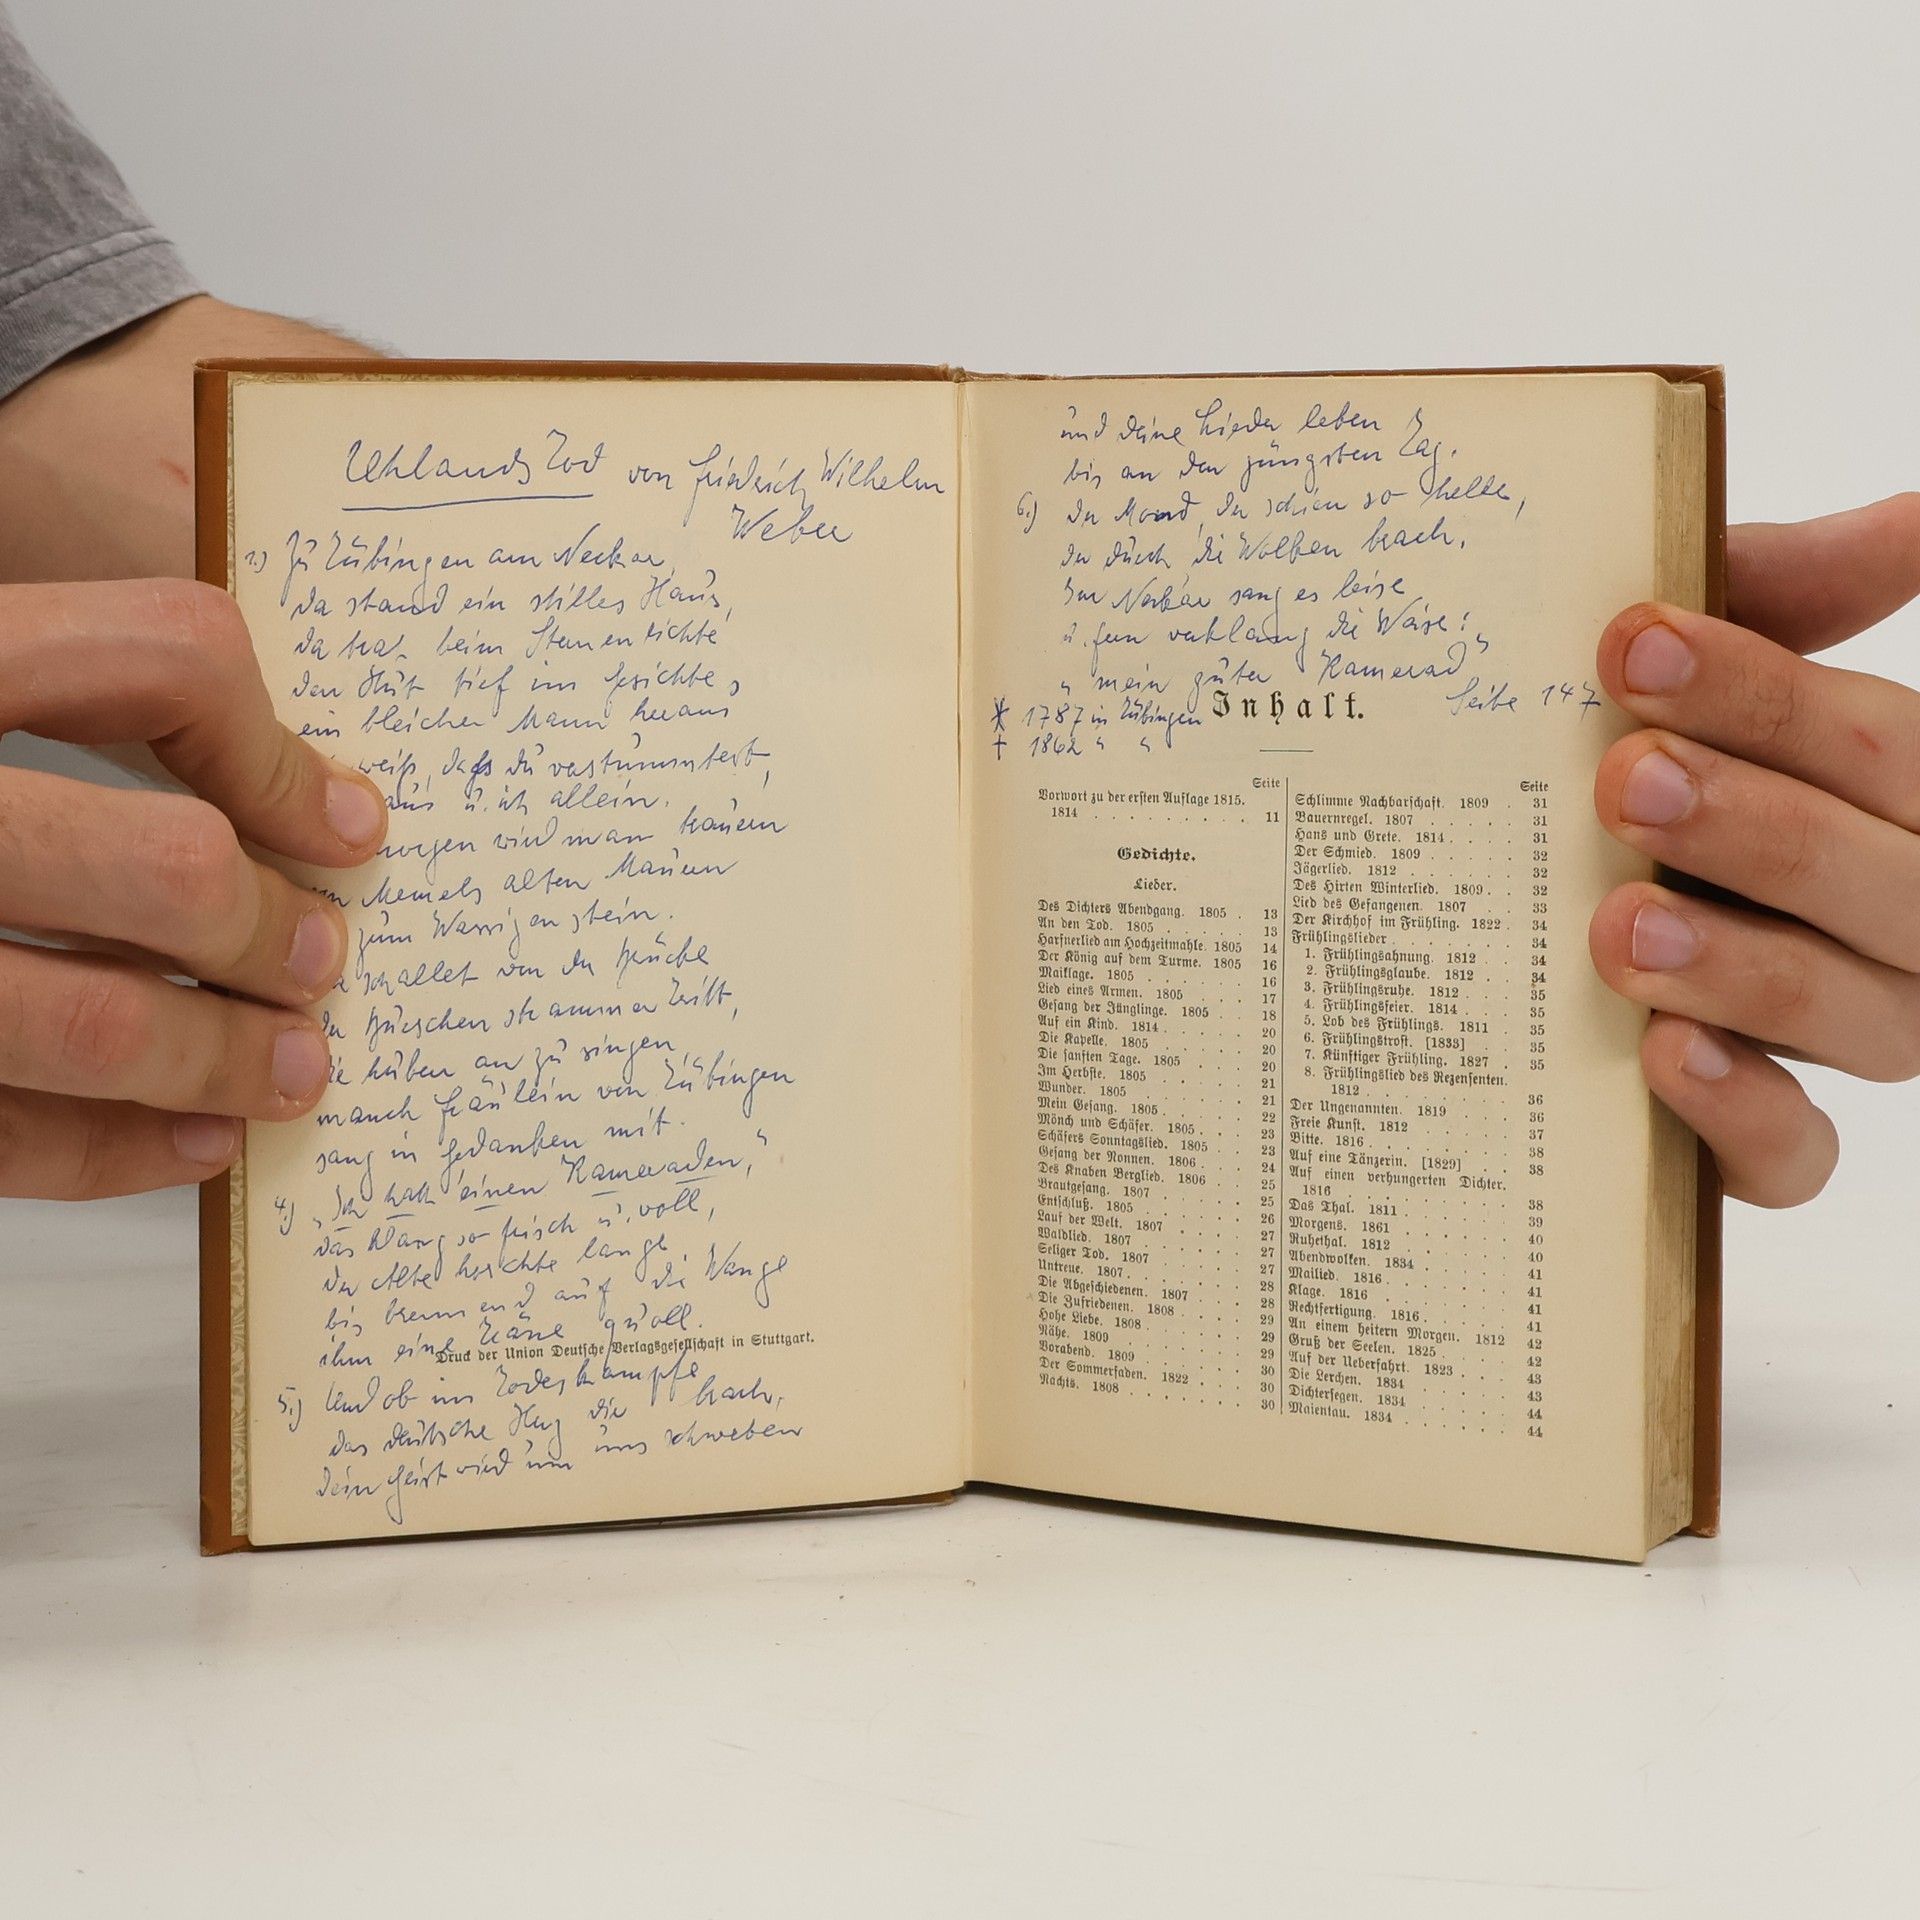 Uhlands Tod von Friedrich Wilhelm
Weber
1.) Zu Tübingen am Neckar
da stand ein stilles Haus,
da trat beim Sternenlichte
den Hut tief im Gesichte,
ein bleicher Mann heraus
weiß, dass du verstummtest,
aus u. ich allein.
morgen wird man trauern
Memels alten Mauern
zum Wassigenstein.
schallet von der Brücke
der Burschen strammer Tritt,
huben an zu singen
manch Fräulein von Tübingen
sang in Gedanken mit.
4.) „Ich hatt einen Kameraden,“
das klang so frisch u. voll,
der Alte horchte lange
bis brennend auf die Wange
ihm eine Träne quoll.
Druck der Union Deutsche Verlagsgesellschaft in Stuttgart.
5.) Und ob im Todeskampfe
das deutsche Herz dir brach,
Dein Geist wird um uns schweben
und deine Lieder leben
bis an den jüngsten Tag.
6.) Der Mond, der schien so helle,
der durch die Wolken brach.
Im Neckar sang es leise
u. fern verklang die Weise:
„mein guter Kamerad“
Seite 147
* 1787 in Tübingen
† 1862 " "
Inhalt.
Seite
Vorwort zu der ersten Auflage 1815.
1814 . . . . . . . . . 11
Gedichte.
Lieder.
Des Dichters Abendgang. 1805 . 13
An den Tod. 1805 . . . . . 13
Harfnerlied am Hochzeitmahle. 1805 14
Der König auf dem Turme. 1805 16
Maiklage. 1805 . . . . . . 16
Lied eines Armen. 1805 . . . 17
Gesang der Jünglinge. 1805 . . 18
Auf ein Kind. 1814 . . . . . 20
Die Kapelle. 1805 . . . . . 20
Die sanften Tage. 1805 . . . 20
Im Herbste. 1805 . . . . . 21
Wunder. 1805 . . . . . . 21
Mein Gesang. 1805 . . . . . 22
Mönch und Schäfer. 1805 . . . 23
Schäfers Sonntagslied. 1805 . . 23
Gesang der Nonnen. 1806 . . . 24
Des Knaben Berglied. 1806 . . 25
Brautgesang. 1807 . . . . . 25
Entschluß. 1805 . . . . . . 26
Lauf der Welt. 1807 . . . . 27
Waldlied. 1807 . . . . . . 27
Seliger Tod. 1807 . . . . . 27
Untreue. 1807 . . . . . . 28
Die Abgeschiedenen. 1807 . . . 28
Die Zufriedenen. 1808 . . . . 29
Hohe Liebe. 1808 . . . . . 29
Nähe. 1809 . . . . . . . 29
Vorabend. 1809 . . . . . . 30
Der Sommerfaden. 1822 . . . . 30
Nachts. 1808 . . . . . . . 30
Seite
Schlimme Nachbarschaft. 1809 . 31
Bauernregel. 1807 . . . . . 31
Hans und Grete. 1814 . . . . 31
Der Schmied. 1809 . . . . . 32
Jägerlied. 1812 . . . . . . 32
Des Hirten Winterlied. 1809 . . 32
Lied des Gefangenen. 1807 . . 33
Der Kirchhof im Frühling. 1822 . 34
Frühlingslieder . . . . . . 34
1. Frühlingsahnung. 1812 . . 34
2. Frühlingsglaube. 1812 . . 34
3. Frühlingsruhe. 1812 . . . 35
4. Frühlingsfeier. 1814 . . . 35
5. Lob des Frühlings. 1811 . . 35
6. Frühlingstrost. [1833] . . 35
7. Künftiger Frühling. 1827 . 35
8. Frühlingslied des Rezensenten.
1812 . . . . . . . . 36
Der Ungenannten. 1819 . . . 36
Freie Kunst. 1812 . . . . . 37
Bitte. 1816 . . . . . . . 38
Auf eine Tänzerin. [1829] . . 38
Auf einen verhungerten Dichter.
1816 . . . . . . . . . 38
Das Thal. 1811 . . . . . . 39
Morgens. 1861 . . . . . . 40
Ruhethal. 1812 . . . . . . 40
Abendwolken. 1834 . . . . . 41
Mailied. 1816 . . . . . . 41
Klage. 1816 . . . . . . . 41
Rechtfertigung. 1816 . . . . 41
An einem heitern Morgen. 1812 42
Gruß der Seelen. 1825 . . . . 42
Auf der Ueberfahrt. 1823 . . . 43
Die Lerchen. 1834 . . . . . 43
Dichtersegen. 1834 . . . . . 44
Maientau. 1834 . . . . . . 44